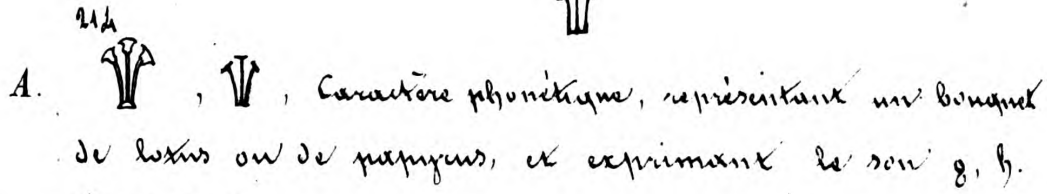 214
A. , , Caractère phonétique, représentant un bouquet
de lotus ou de papyrus, et exprimant le son